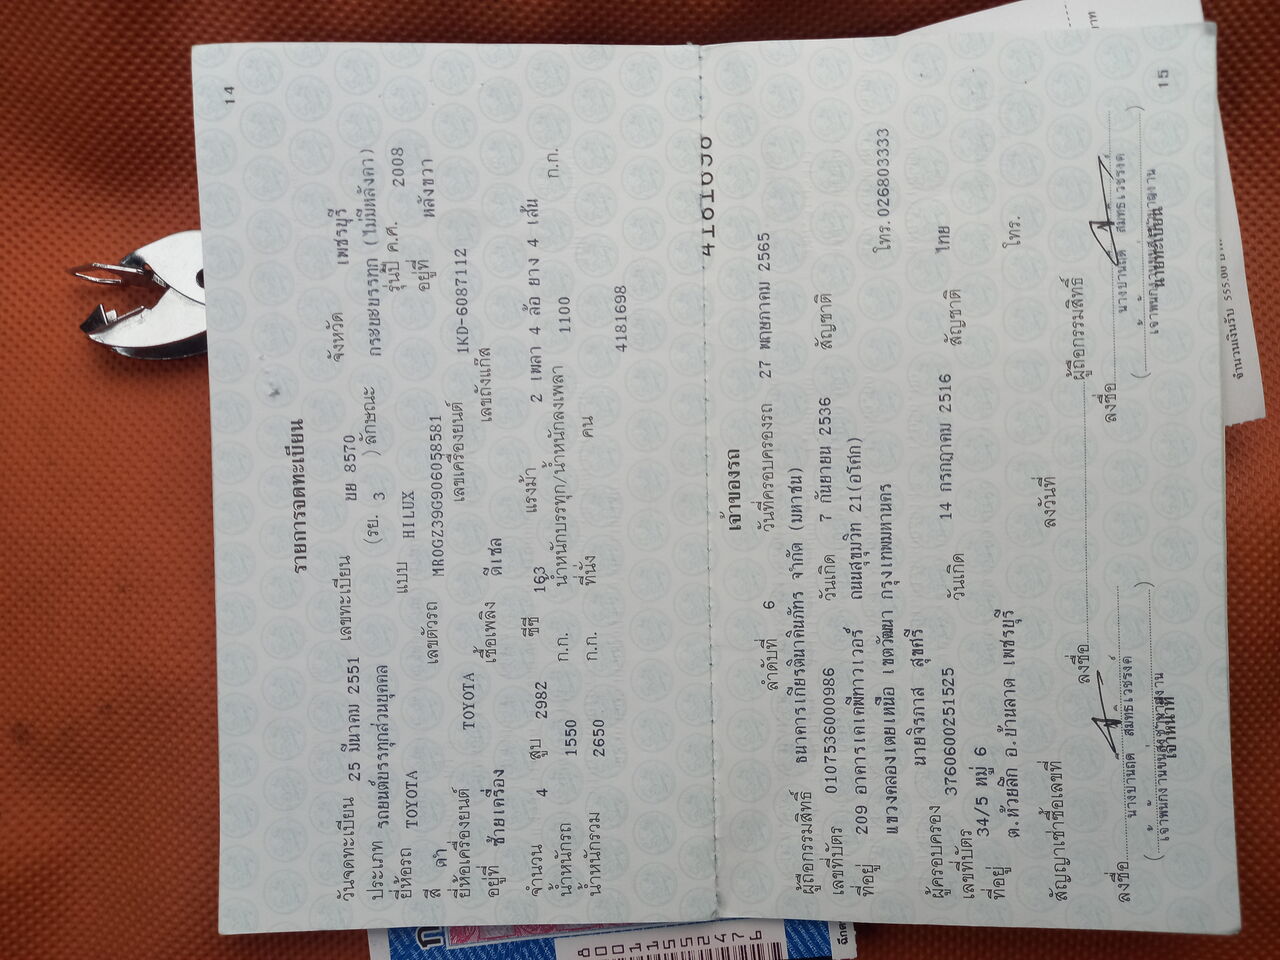 14
รายการจดทะเบียน
วันจดทะเบียน 25 มีนาคม 2551 เลขทะเบียน ยย 8570 จังหวัด เพชรบุรี
ประเภท รถยนต์บรรทุกส่วนบุคคล (รย. 3 ) ลักษณะ กระบะบรรทุก (ไม่มีหลังคา)
ยี่ห้อรถ TOYOTA แบบ HILUX รุ่นปี ค.ศ. 2008
สี ดำ เลขตัวรถ MR0GZ39G906058581 อยู่ที่ หลังขวา
ยี่ห้อเครื่องยนต์ TOYOTA เลขเครื่องยนต์ 1KD-6087112
อยู่ที่ ซ้ายเครื่อง เชื้อเพลิง ดีเซล เลขถังแก๊ส
จำนวน 4 สูบ 2982 ซีซี 163 แรงม้า 2 เพลา 4 ล้อ ยาง 4 เส้น
น้ำหนักรถ 1550 ก.ก. น้ำหนักบรรทุก/น้ำหนักลงเพลา 1100 ก.ก.
น้ำหนักรวม 2650 ก.ก. ที่นั่ง คน
4181698
เจ้าของรถ
ลำดับที่ 6 วันที่ครอบครองรถ 27 พฤษภาคม 2565
ผู้ถือกรรมสิทธิ์ ธนาคารเกียรตินาคินภัทร จำกัด (มหาชน)
เลขที่บัตร 0107536000986 วันเกิด 7 กันยายน 2536 สัญชาติ
ที่อยู่ 209 อาคารเคเคพีทาวเวอร์ ถนนสุขุมวิท 21(อโศก)
แขวงคลองเตยเหนือ เขตวัฒนา กรุงเทพมหานคร โทร.026803333
ผู้ครอบครอง นายจิรภาส สุขศรี
เลขที่บัตร 3760600251525 วันเกิด 14 กรกฎาคม 2516 สัญชาติ ไทย
ที่อยู่ 34/5 หมู่ 6
ต.ห้วยลึก อ.บ้านลาด เพชรบุรี โทร.
สัญญาเช่าซื้อเลขที่ ลงวันที่
ลงชื่อ ผู้ถือกรรมสิทธิ์
ลงชื่อ ลงชื่อ
เจ้าหน้าที่ นายทะเบียน
15
จำนวนเงินรับ 555.00
8001155247 6